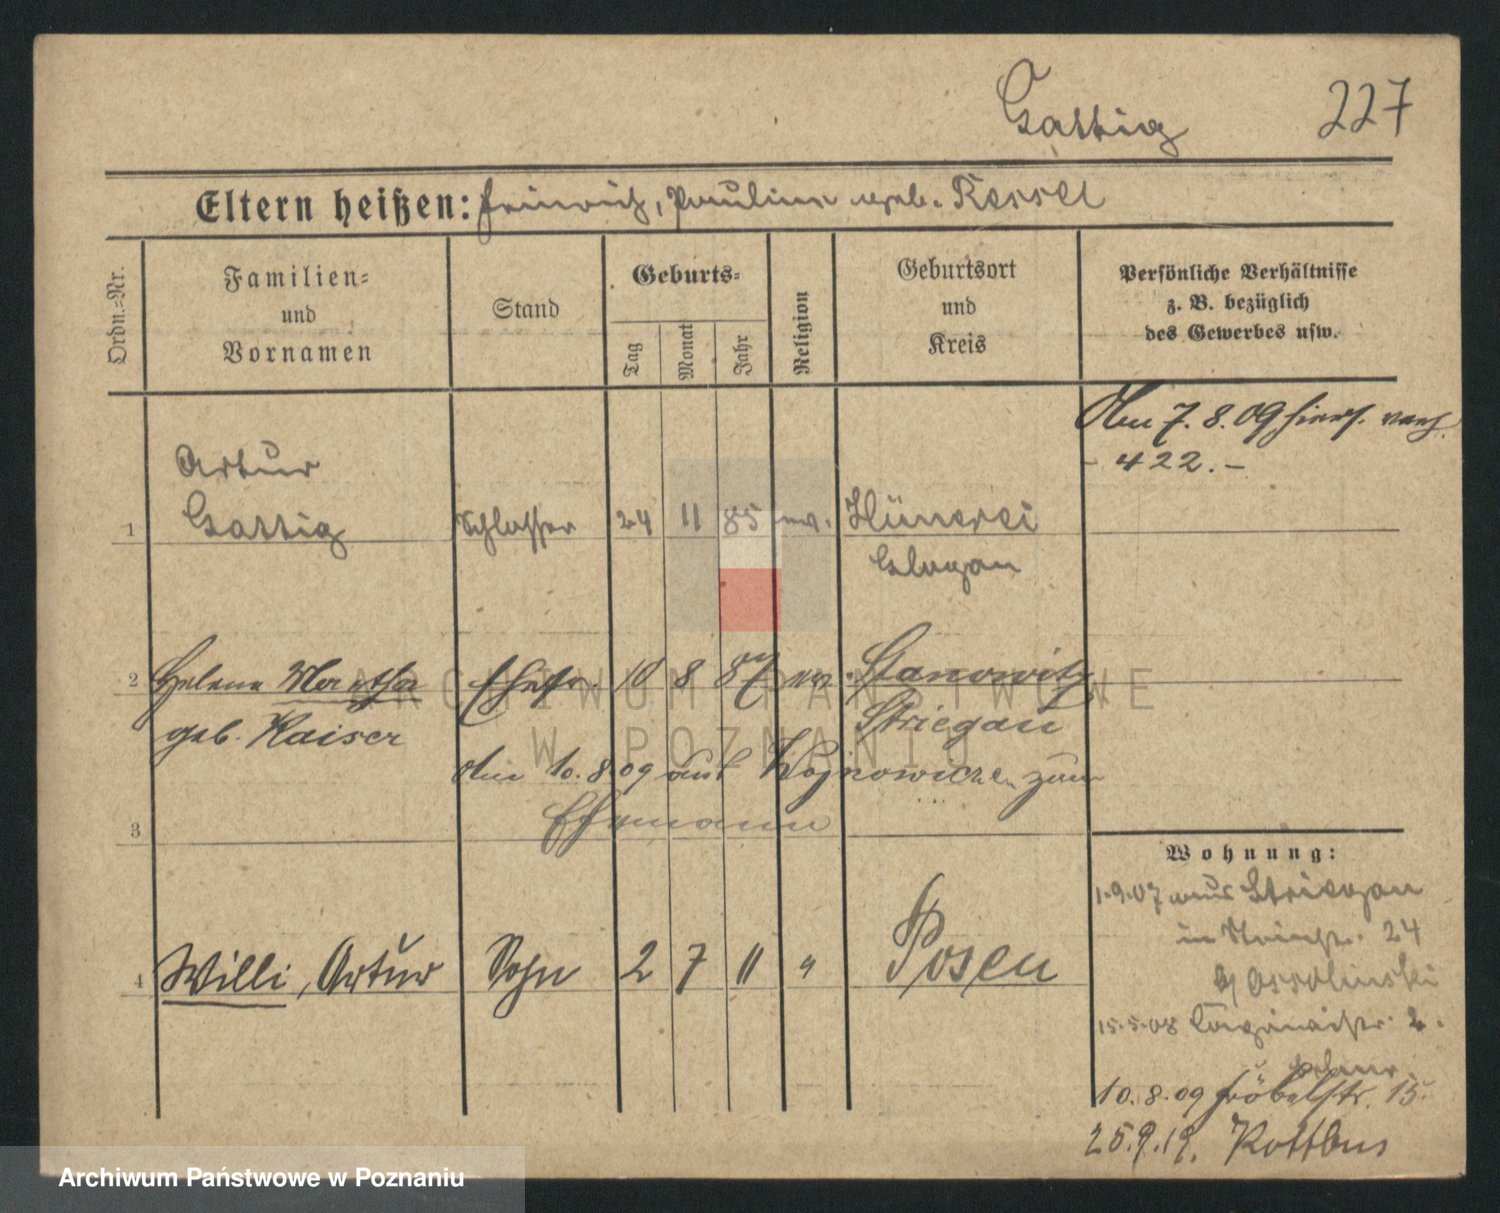 Gattig 227
Eltern heißen: Heinrich, Pauline geb. Kessel
Ordn.=Nr.
Familien=
und
Vornamen
Stand
Geburts=
Tag
Monat
Jahr
Religion
Geburtsort
und
Kreis
Persönliche Verhältnisse
z. B. bezüglich
des Gewerbes usw.
Am 7. 8. 09 hiers. verh.
- 422. -
Artur
1 Gattig Schlosser 24 11 85 ev. Hünerei
Glogau
2 Helene Martha Ehefr. 10 8 87 ev. Stanowitz
geb. Kaiser Striegau
Am 10. 8. 09 aus Wojnowice zum
3 Ehemann
4 Willi, Artur Sohn 2 7 11 " Posen
Wohnung:
1.9.07 aus Striegau
in 24
b/ Ossolinski
15.5.08 2.
10. 8. 09 Fröbelstr. 15.
25.9.19. Kottbus
ARCHIWUM PAŃSTWOWE
W POZNANIU
Archiwum Państwowe w Poznaniu